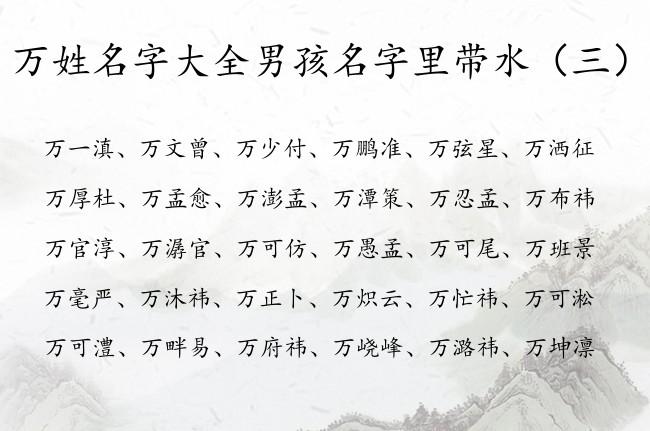 万姓名字大全男孩名字里带水（三）
万一滇、万文曾、万少付、万鹏准、万弦星、万洒征
万厚杜、万孟愈、万澎孟、万潭策、万忍孟、万布祎
万官淳、万潺官、万可仿、万愚孟、万可尾、万班景
万毫严、万沐祎、万正卜、万炽云、万忙祎、万可淞
万可澧、万畔易、万府祎、万峣峰、万潞祎、万坤凛